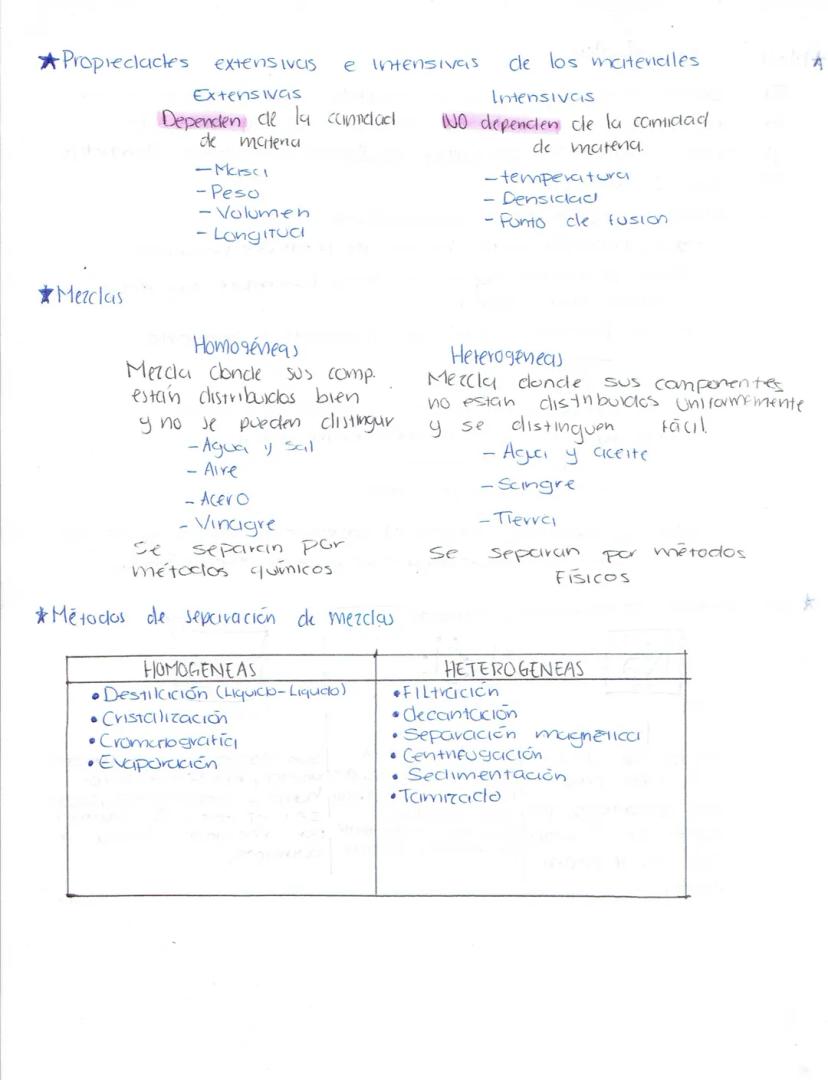 ★ Propiedades extensivas e intensivas de los materiales
Extensivas
Dependen de la cantidad
de materia
- Masa
- Peso
- Volumen
- Longitud
Intensivas
NO dependen de la cantidad
de materia.
- temperatura
- Densidad
- Punto de fusion
★ Mezclas
Homogéneas
Mezcla donde sus comp.
están distribuidos bien
y no se pueden distinguir
- Agua y sal
- Aire
- Acero
- Vinagre
Se separan por
métodos químicos
Heterogéneas
Mezcla donde sus componentes
no estan distribuidos uniformemente
y se distinguen fácil.
- Agua y aceite
- Sangre
- Tierra
Se separan por métodos
Físicos
★ Métodos de separación de mezclas
HOMOGENEAS
• Destilación (Liquido-Liquido)
• Cristalización
• Cromatografía
• Evaporación
HETEROGENEAS
• Filtración
• decantación
• Separación magnética
• Centrifugación
• Sedimentación
• Tamizado